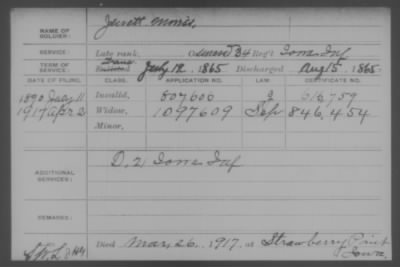 NAME OF SOLDIER: Jerrett Morris,
SERVICE: Late rank, Co. 34 Reg't Iowa Inf
TERM OF SERVICE: Trans. Enlisted July 12, 1865 Discharged Aug 15, 1865
DATE OF FILING. CLASS. APPLICATION NO. LAW. CERTIFICATE NO.
1890 July 11 Invalid, 807606 616,759
1917 Apr 2 Widow, 1097609 Sep 846,454
Minor,
ADDITIONAL SERVICES: D, 21 Iowa Inf
REMARKS:
Died Mar 26, 1917, at Strawberry Point
Iowa,